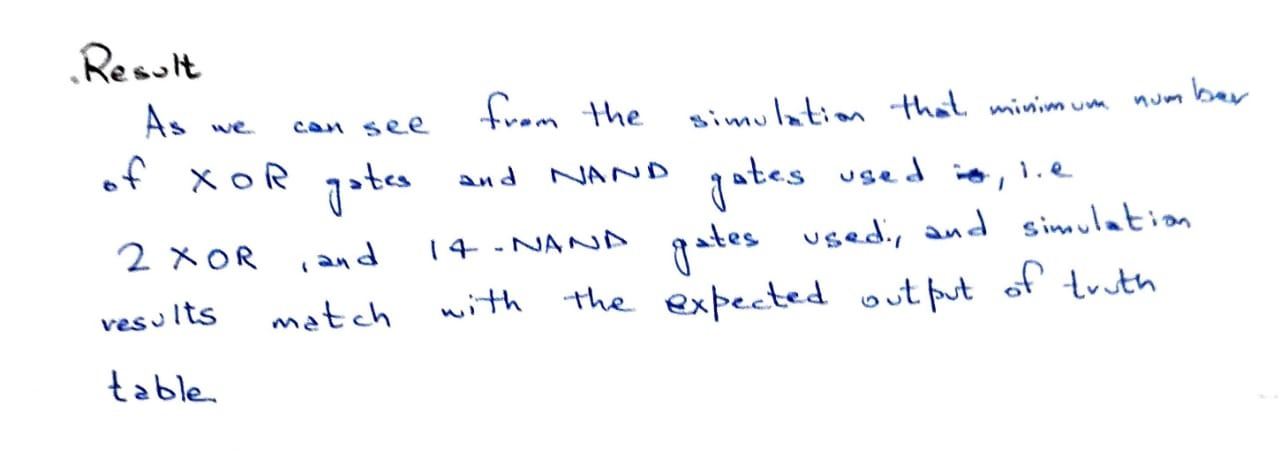 .Result
As we can see from the simulation that minimum number
of XOR gates and NAND gates used is, i.e
2 XOR , and 14 - NAND gates used, and simulation
results match with the expected output of truth
table